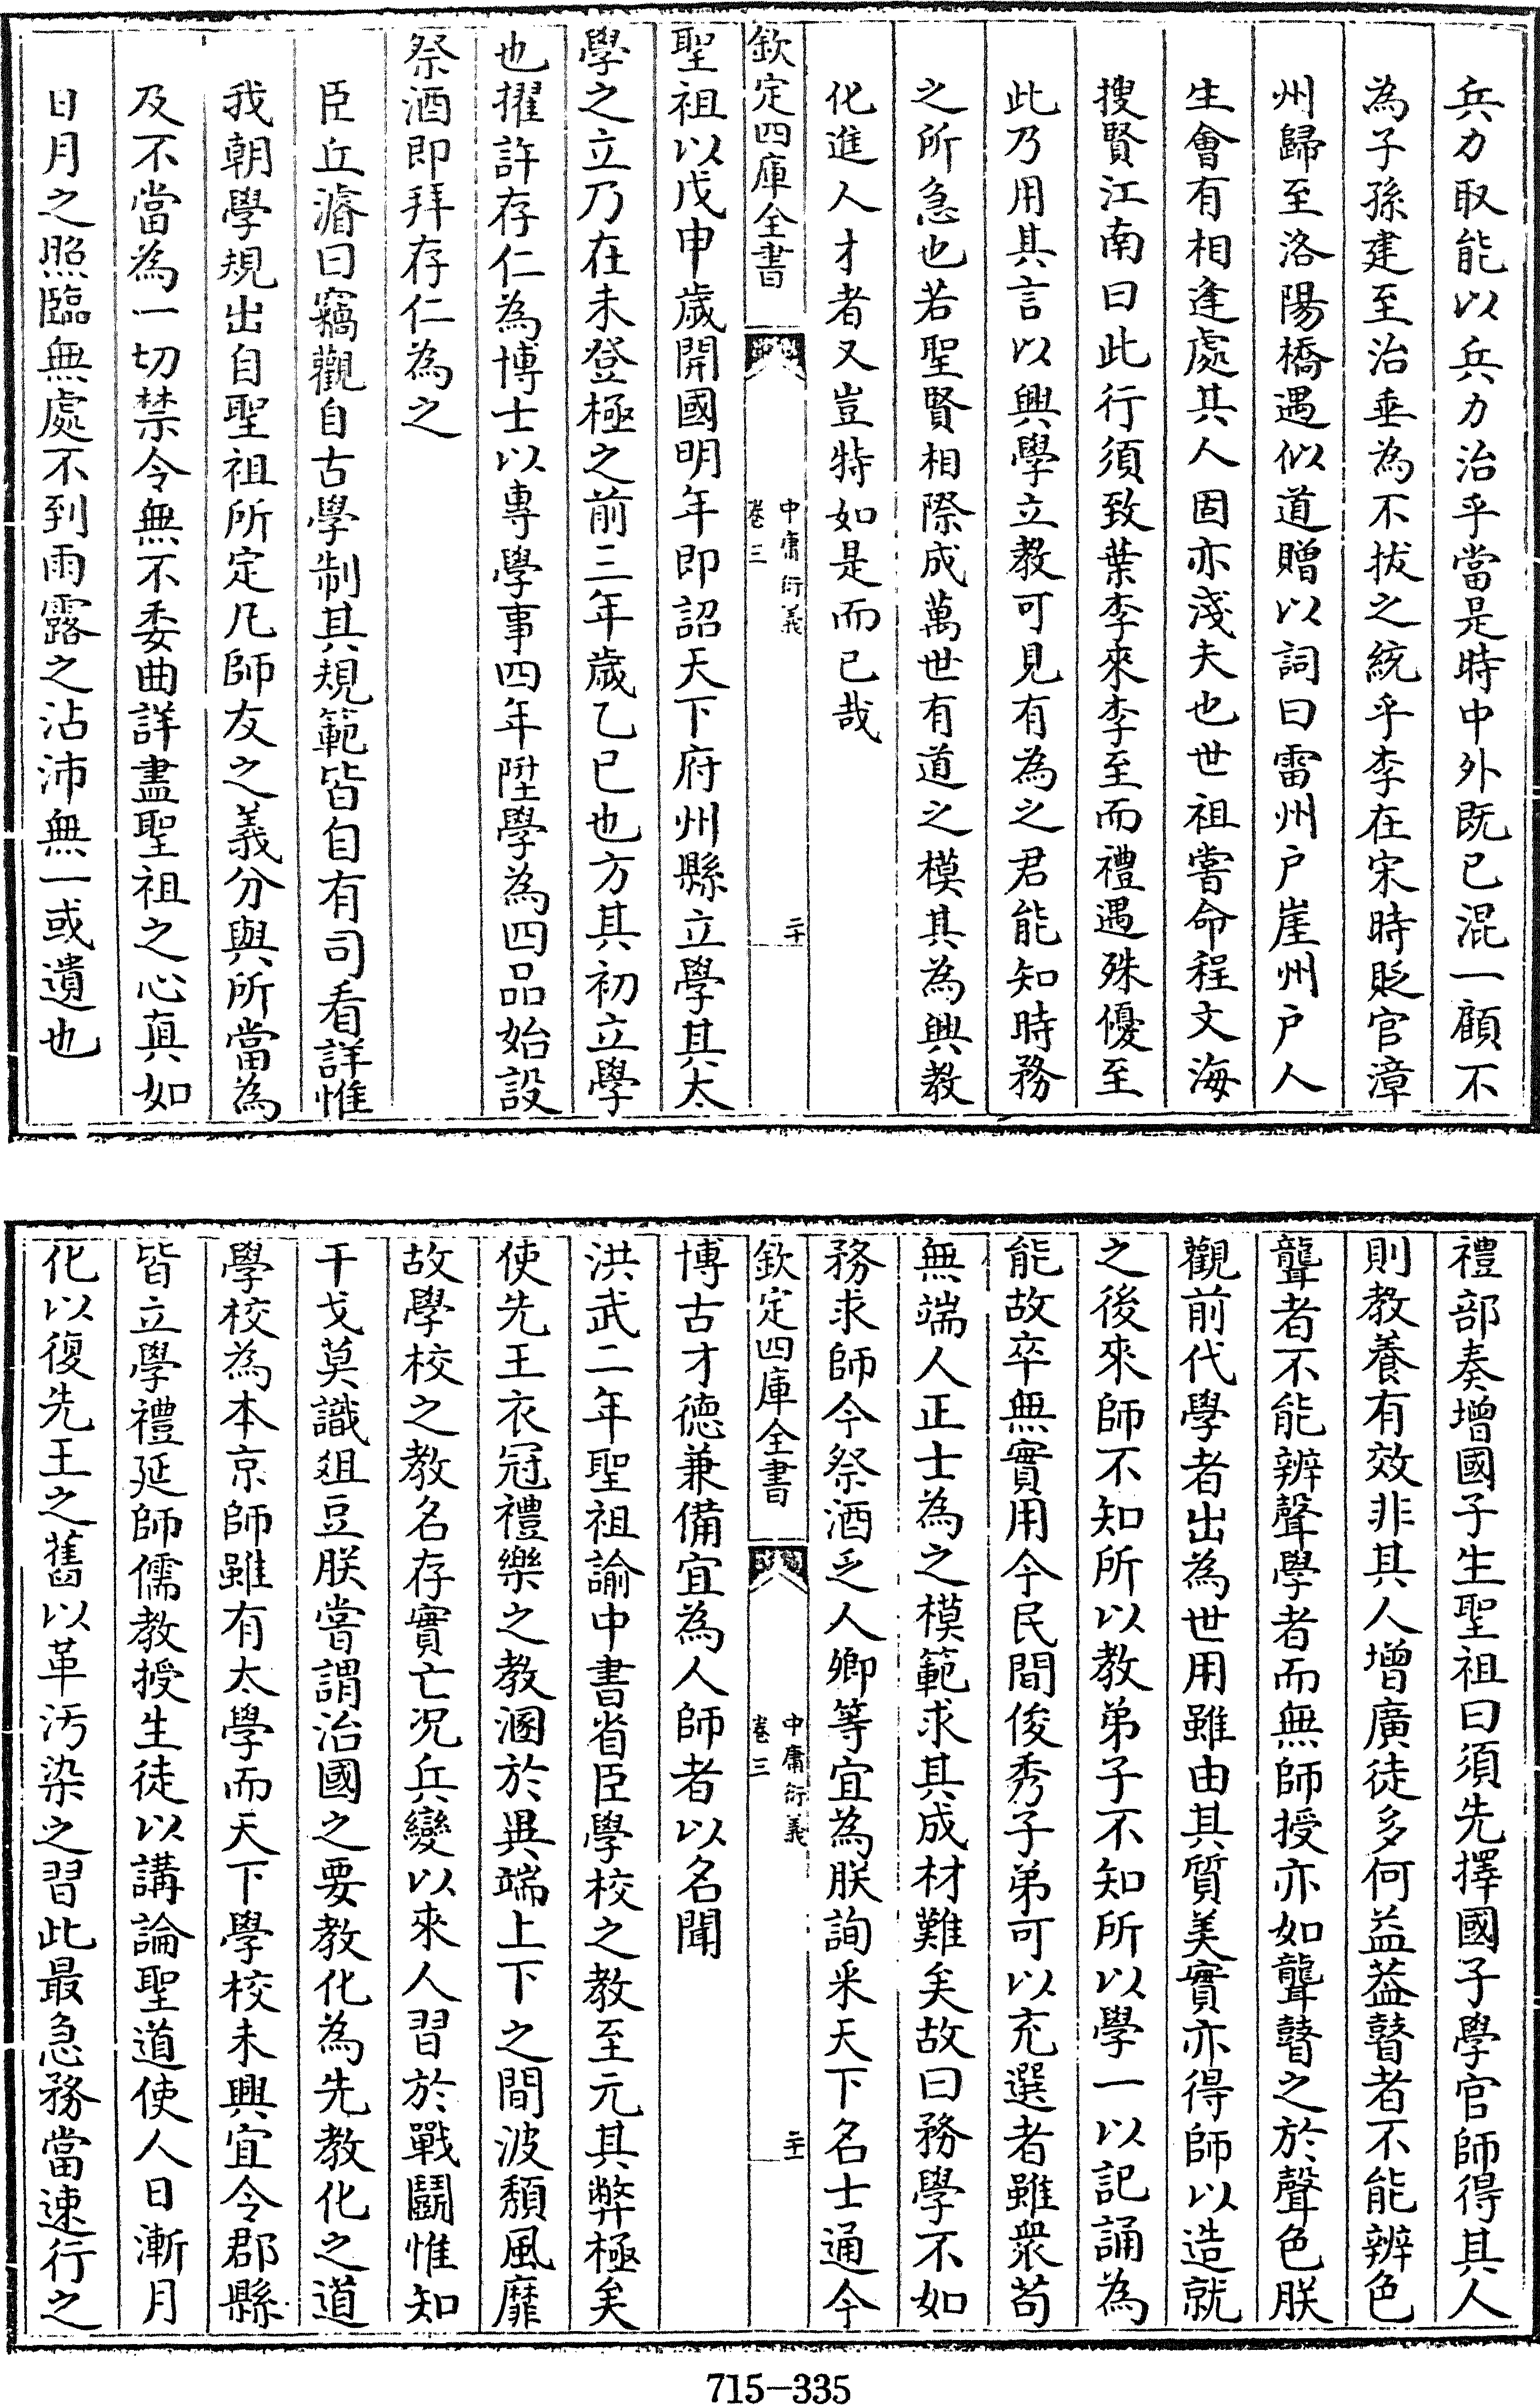 兵力取能以兵力治乎當是時中外既已混一顧不
為子孫建至治垂為不拔之統乎李在宋時貶官漳
州歸至洛陽橋遇似道贈以詞曰雷州户崖州户人
生會有相逢處其人固亦淺夫也世祖嘗命程文海
搜賢江南曰此行須致葉李來李至而禮遇殊優至
此乃用其言以興學立教可見有為之君能知時務
之所急也若聖賢相際成萬世有道之模其為興教
化進人才者又豈特如是而已哉
欽定四庫全書
中庸衍義
卷三
二十
聖祖以戊申歲開國明年即詔天下府州縣立學其太
學之立乃在未登極之前三年歲乙已也方其初立學
也擢許存仁為博士以專學事四年陞學為四品始設
祭酒即拜存仁為之
臣丘濬曰竊觀自古學制其規範皆自有司看詳惟
我朝學規出自聖祖所定凡師友之義分與所當為
及不當為一切禁令無不委曲詳盡聖祖之心真如
日月之照臨無處不到雨露之沾沛無一或遺也
禮部奏增國子生聖祖曰須先擇國子學官師得其人
則教養有效非其人增廣徒多何益葢瞽者不能辨色
聾者不能辨聲學者而無師授亦如聾瞽之於聲色朕
觀前代學者出為世用雖由其質美實亦得師以造就
之後來師不知所以教弟子不知所以學一以記誦為
能故卒無實用今民間俊秀子弟可以充選者雖衆苟
無端人正士為之模範求其成材難矣故曰務學不如
務求師今祭酒乏人卿等宜為朕詢采天下名士通今
欽定四庫全書
中庸衍義
卷三
二十一
博古才德兼備宜為人師者以名聞
洪武二年聖祖諭中書省臣學校之教至元其弊極矣
使先王衣冠禮樂之教溷於異端上下之間波頹風靡
故學校之教名存實亡况兵變以來人習於戰鬬惟知
干戈莫識俎豆朕嘗謂治國之要教化為先教化之道
學校為本京師雖有太學而天下學校未興宜令郡縣
皆立學禮延師儒教授生徒以講論聖道使人日漸月
化以復先王之舊以革汚染之習此最急務當速行之
715-335